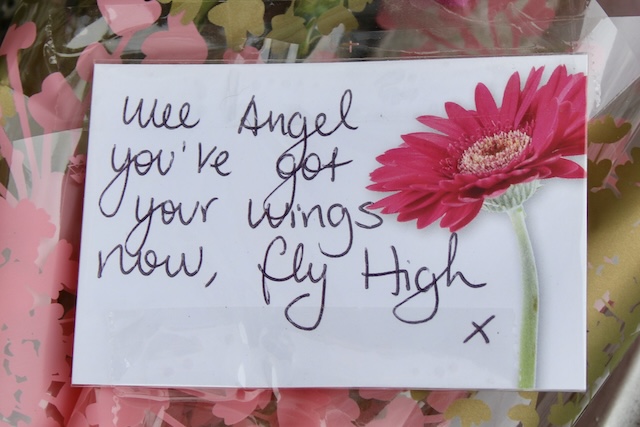 wee Angel
you've got
your wings
now, fly High
x